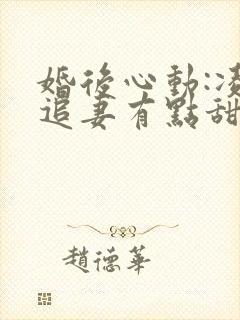 婚後心動:
追妻有點甜
趙德華